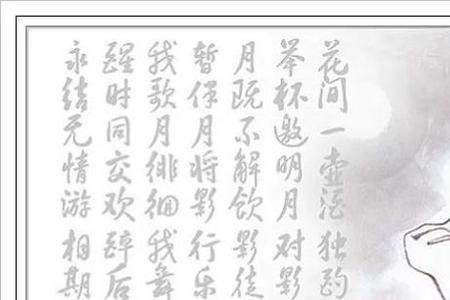 花间一壶酒独酌
举杯邀明月对影
月既不解饮影徒
暂伴月将影行乐
我歌月徘徊我舞
醒时同交欢醉后
永结无情游相期